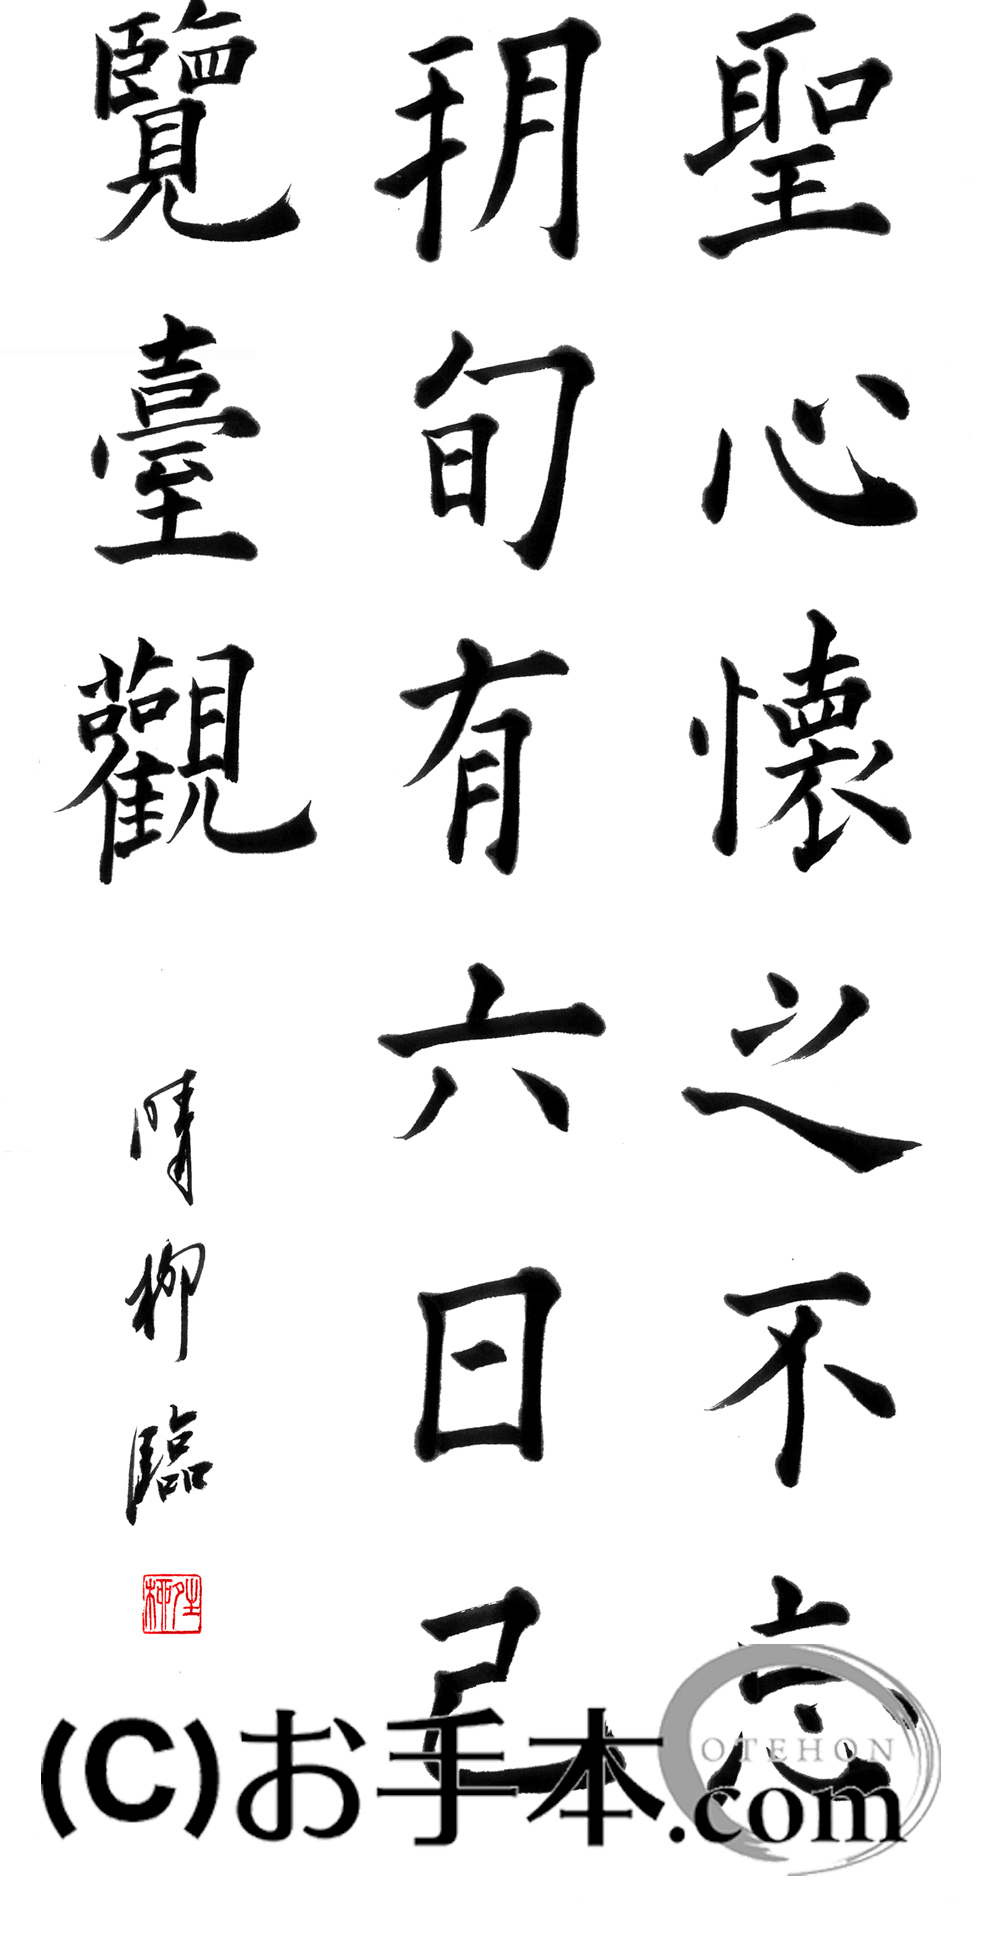 聖心懐之不忘
朔旬有六日己
覽臺觀
晴柳臨
(C)お手本.com
OTEHON